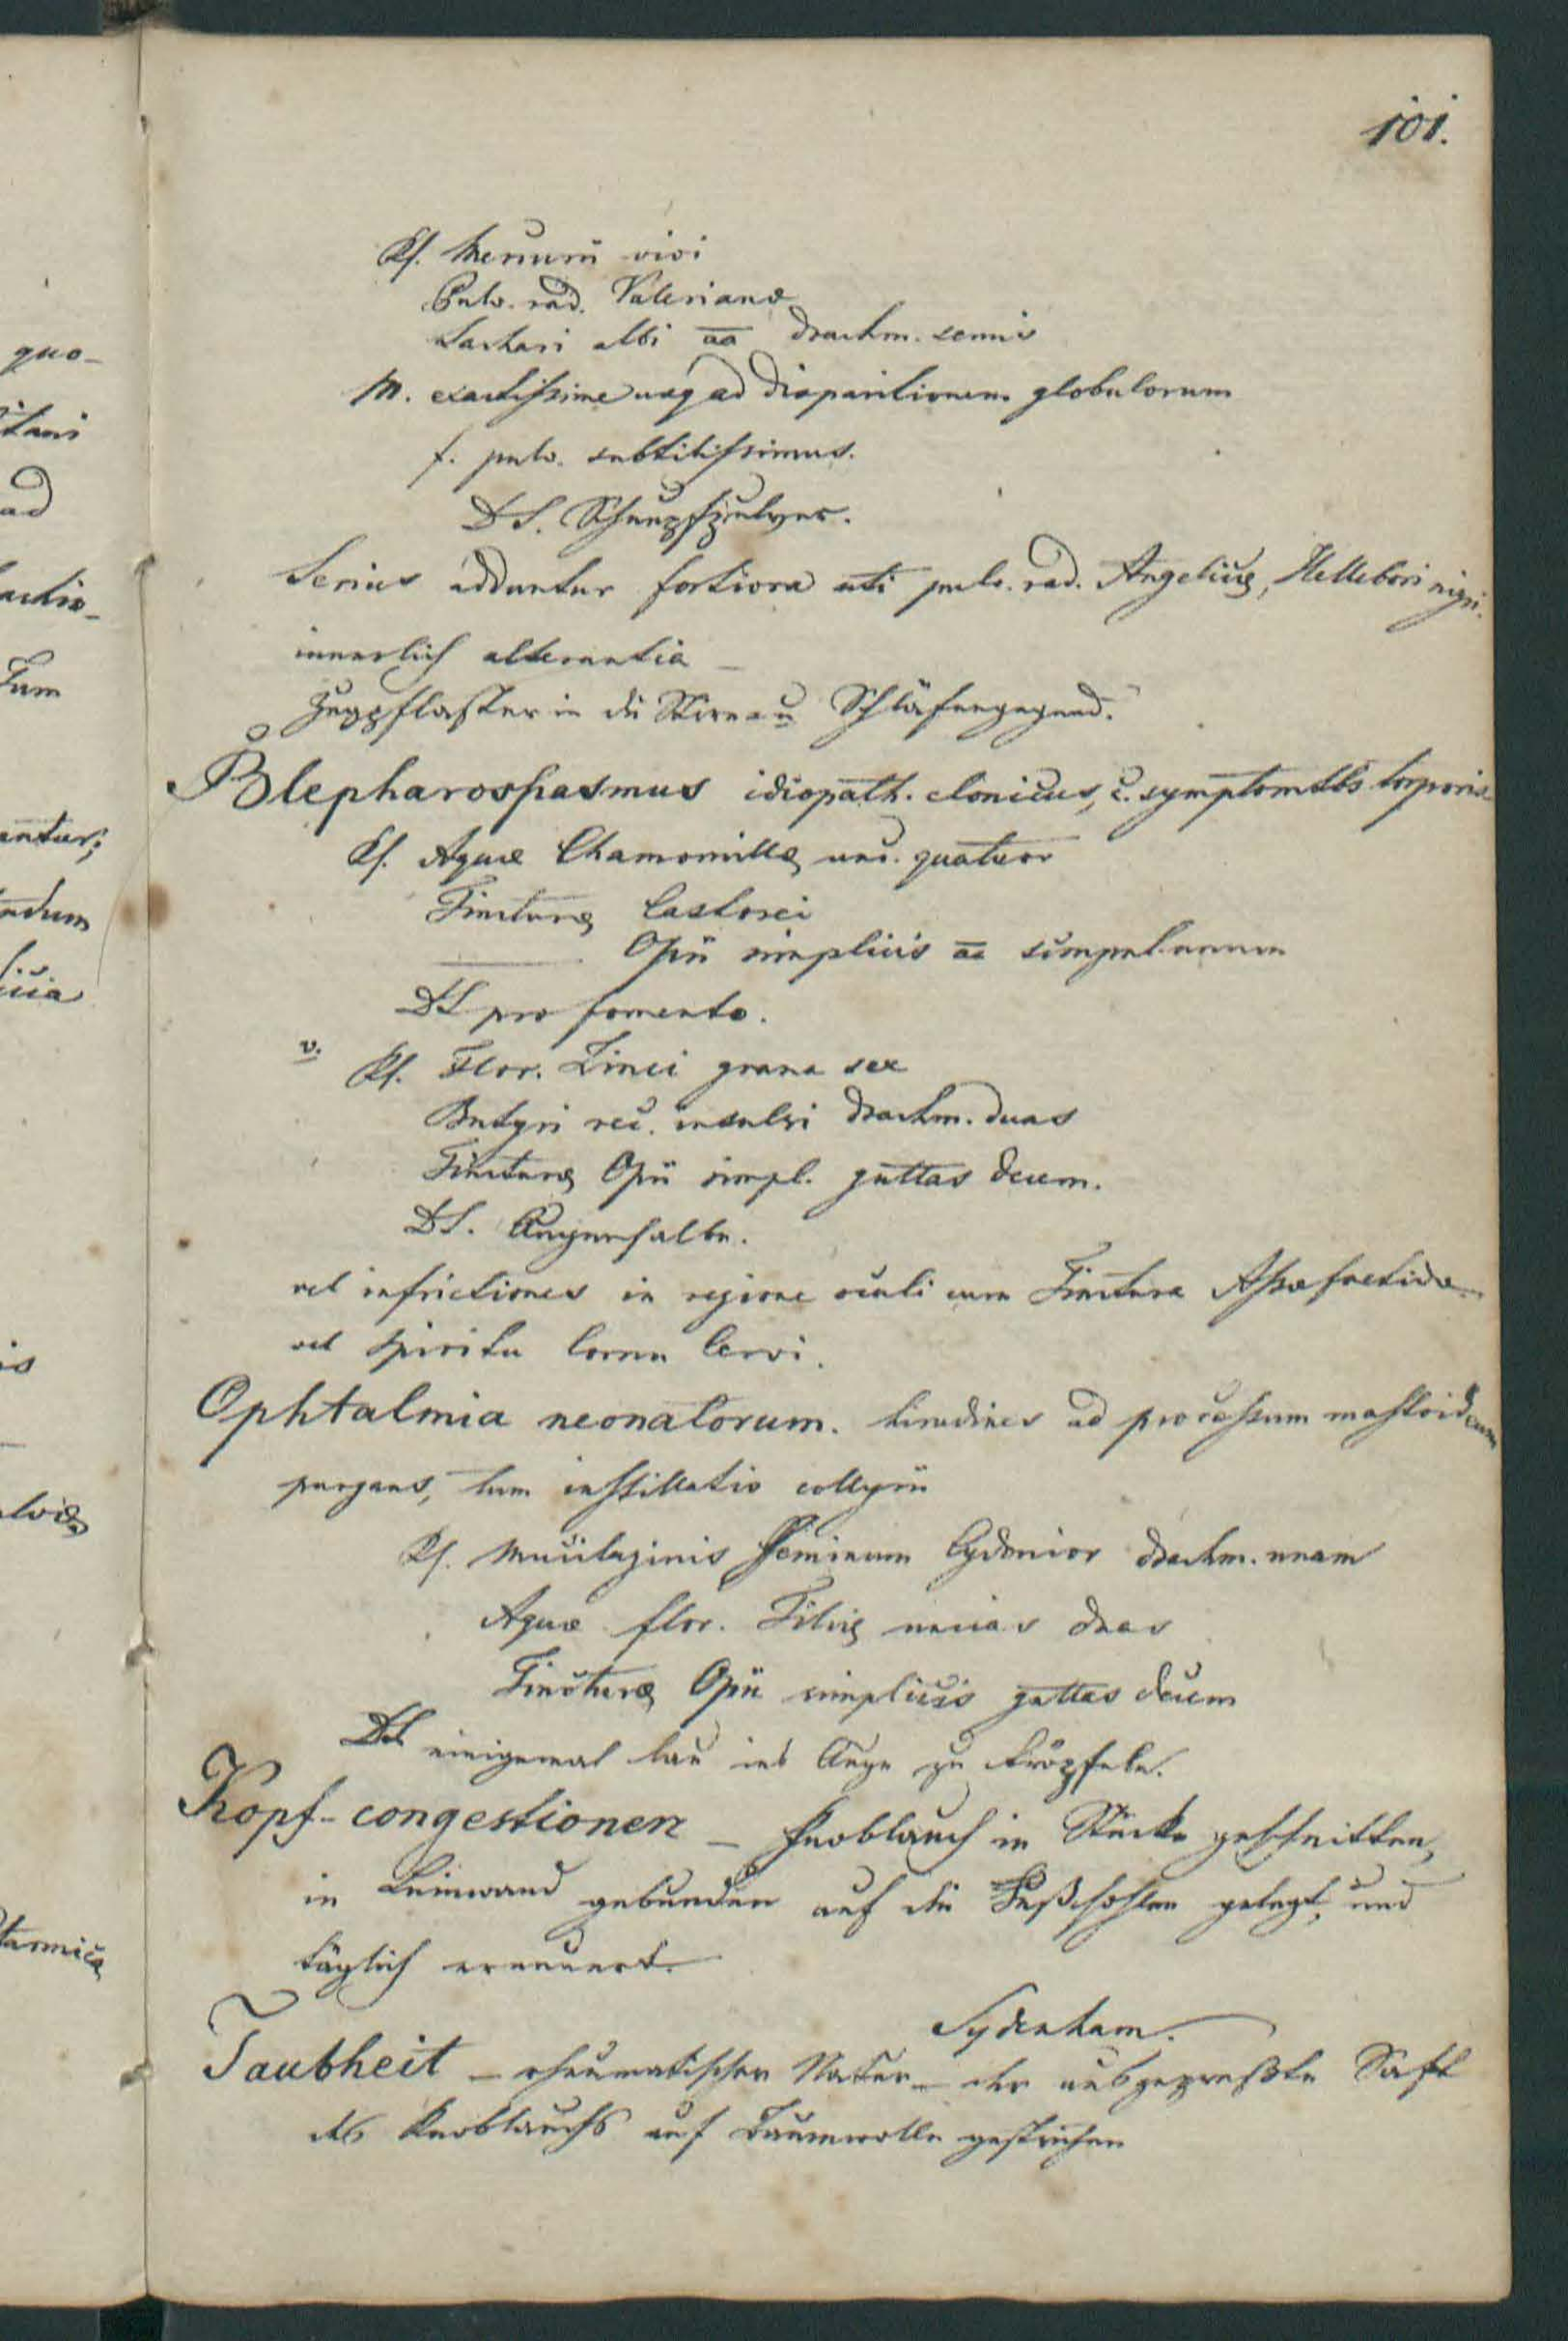 101.
Rf. Mercurii vivi
Pulv. rad. Valerianæ
Sachari albi aa drachm. semis
M. exactissime usq ad disparitionem globulorum
f. pulv. subtilissimus.
DS. Schnupfpulver.
Serius adduntur fortiora uti pulv. rad. Angelicæ, Hellebori nigri.
innerlich alterantia _
Zugpflaster in die Stirn u Schläfengegend.
Blepharospasmus idiopath. clonicus, c. symptomtbs torporis
Rf. Aquæ Chamomillæ unc. quatuor
Tincturæ Castorei
——— Opii simplicis aa scrupul. unum
DS pro fomento.
v. Rf. Flor. Zinci grana sex
Butyri rec. insulsi drachm. duas
Tincturæ Opii simpl. guttas decem.
DS. Augensalbe.
vel infrictiones in regione oculi cum Tinctura Assæfoetidæ
vel spiritu Cornu Cervi.
Ophtalmia neonatorum. hirudines ad processum mastoideum
purgans, tum instillatio collyrii
Rf. Mucilaginis Seminum Cydonior drachm. unam
Aquæ flor. Tiliæ uncias duas
Tincturæ Opii simplicis guttas decem
DS einigemal lau ins Auge zu tröpfeln.
Kopf-congestionen _ Knoblauch in Stücke geschnitten,
in Leinwand gebunden auf die Fußsohlen gelegt, und
täglich erneuert.
Sydenham.
Taubheit _ rheumatischer Natur _ der ausgepreßte Saft
des Knoblauchs auf Baumwolle gestrichen
quo-
ad
Tum
antur;
endum
is